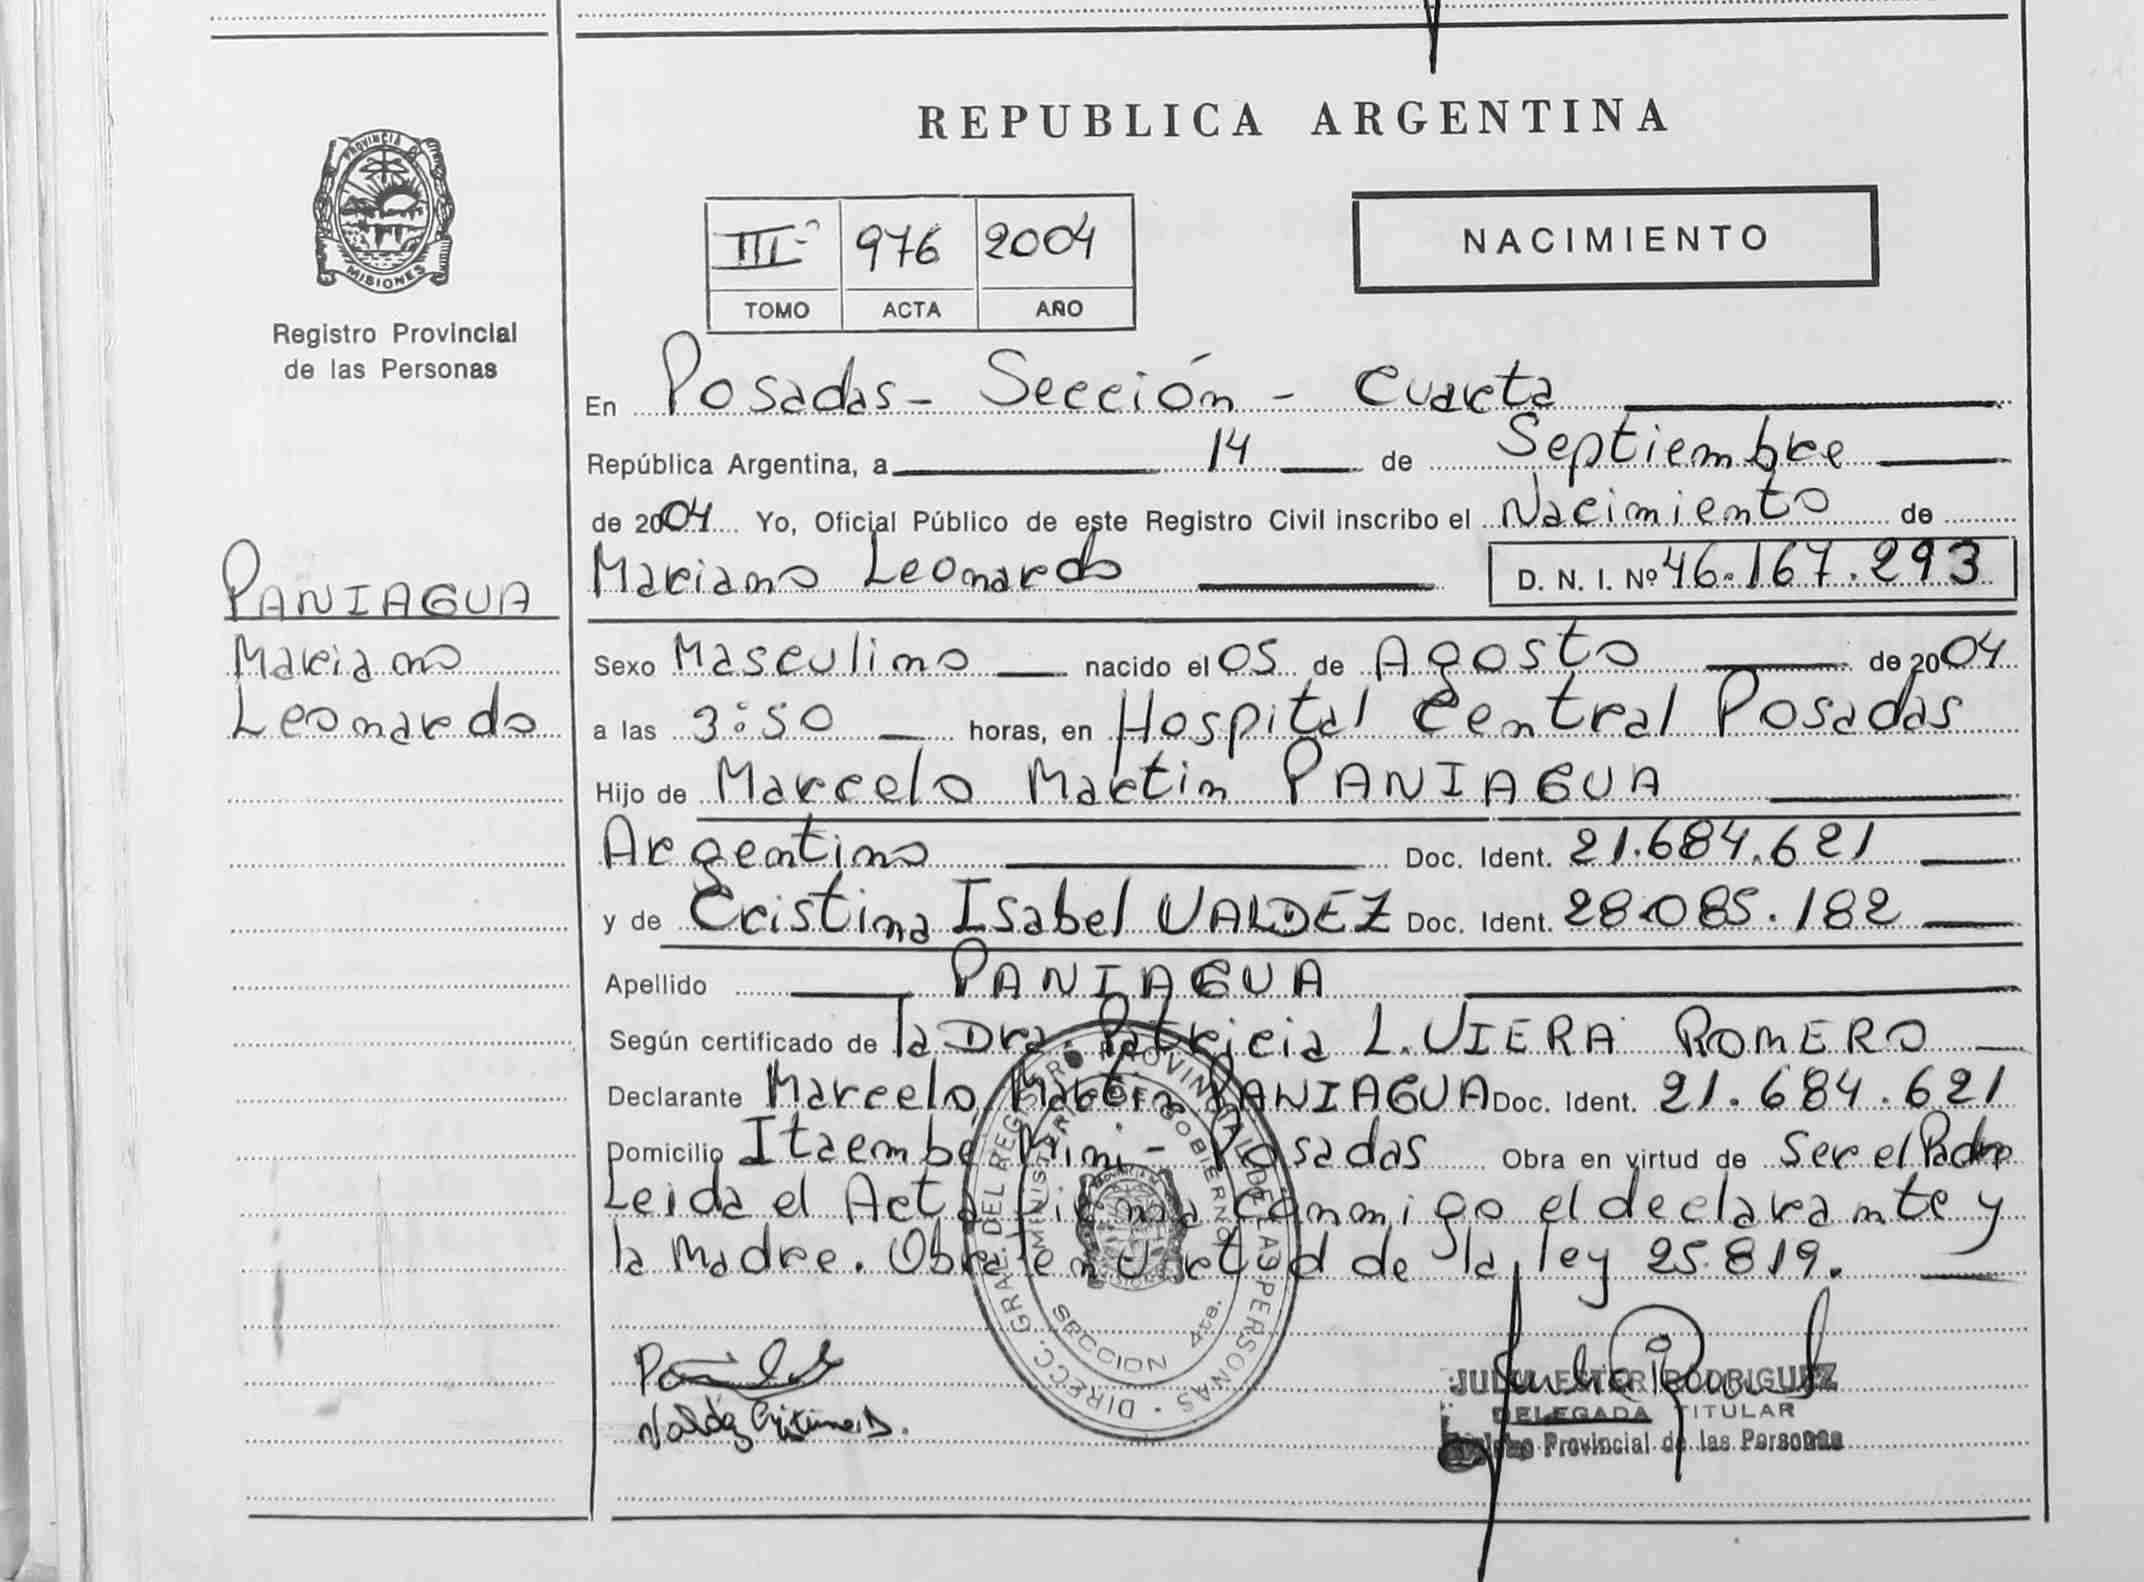 REPUBLICA ARGENTINA
PROVINCIA DE
MISIONES
Registro Provincial
de las Personas
III 976 2004
TOMO ACTA AÑO
NACIMIENTO
En Posadas - Sección - Cuarta
República Argentina, a 14 de Septiembre
de 2004 Yo, Oficial Público de este Registro Civil inscribo el Nacimiento de
Mariano Leonardo D. N. I. Nº 46.167.293
PANIAGUA
Mariano
Leonardo
Sexo Masculino nacido el 05 de Agosto de 2004
a las 3:50 horas, en Hospital Central Posadas
Hijo de Marcelo Martin PANIAGUA
Argentino Doc. Ident. 21.684.621
y de Cristina Isabel VALDEZ Doc. Ident. 28.085.182
Apellido PANIAGUA
Según certificado de la Dra. Patricia L. VIERA ROMERO
Declarante Marcelo Martin PANIAGUA Doc. Ident. 21.684.621
Domicilio Itaembé Mini - Posadas Obra en virtud de Ser el Padre
Leida el Acta firma conmigo el declarante y
la Madre. Obra en virtud de la ley 25.819.
DIRECC. GRAL. DEL REGISTRO PROVINCIAL DE LAS PERSONAS
MINISTERIO DE GOBIERNO
SECCION 4ta.
Valdez Cristina I.
JULIA ESTER RODRIGUEZ
DELEGADA TITULAR
Provincial de las Personas